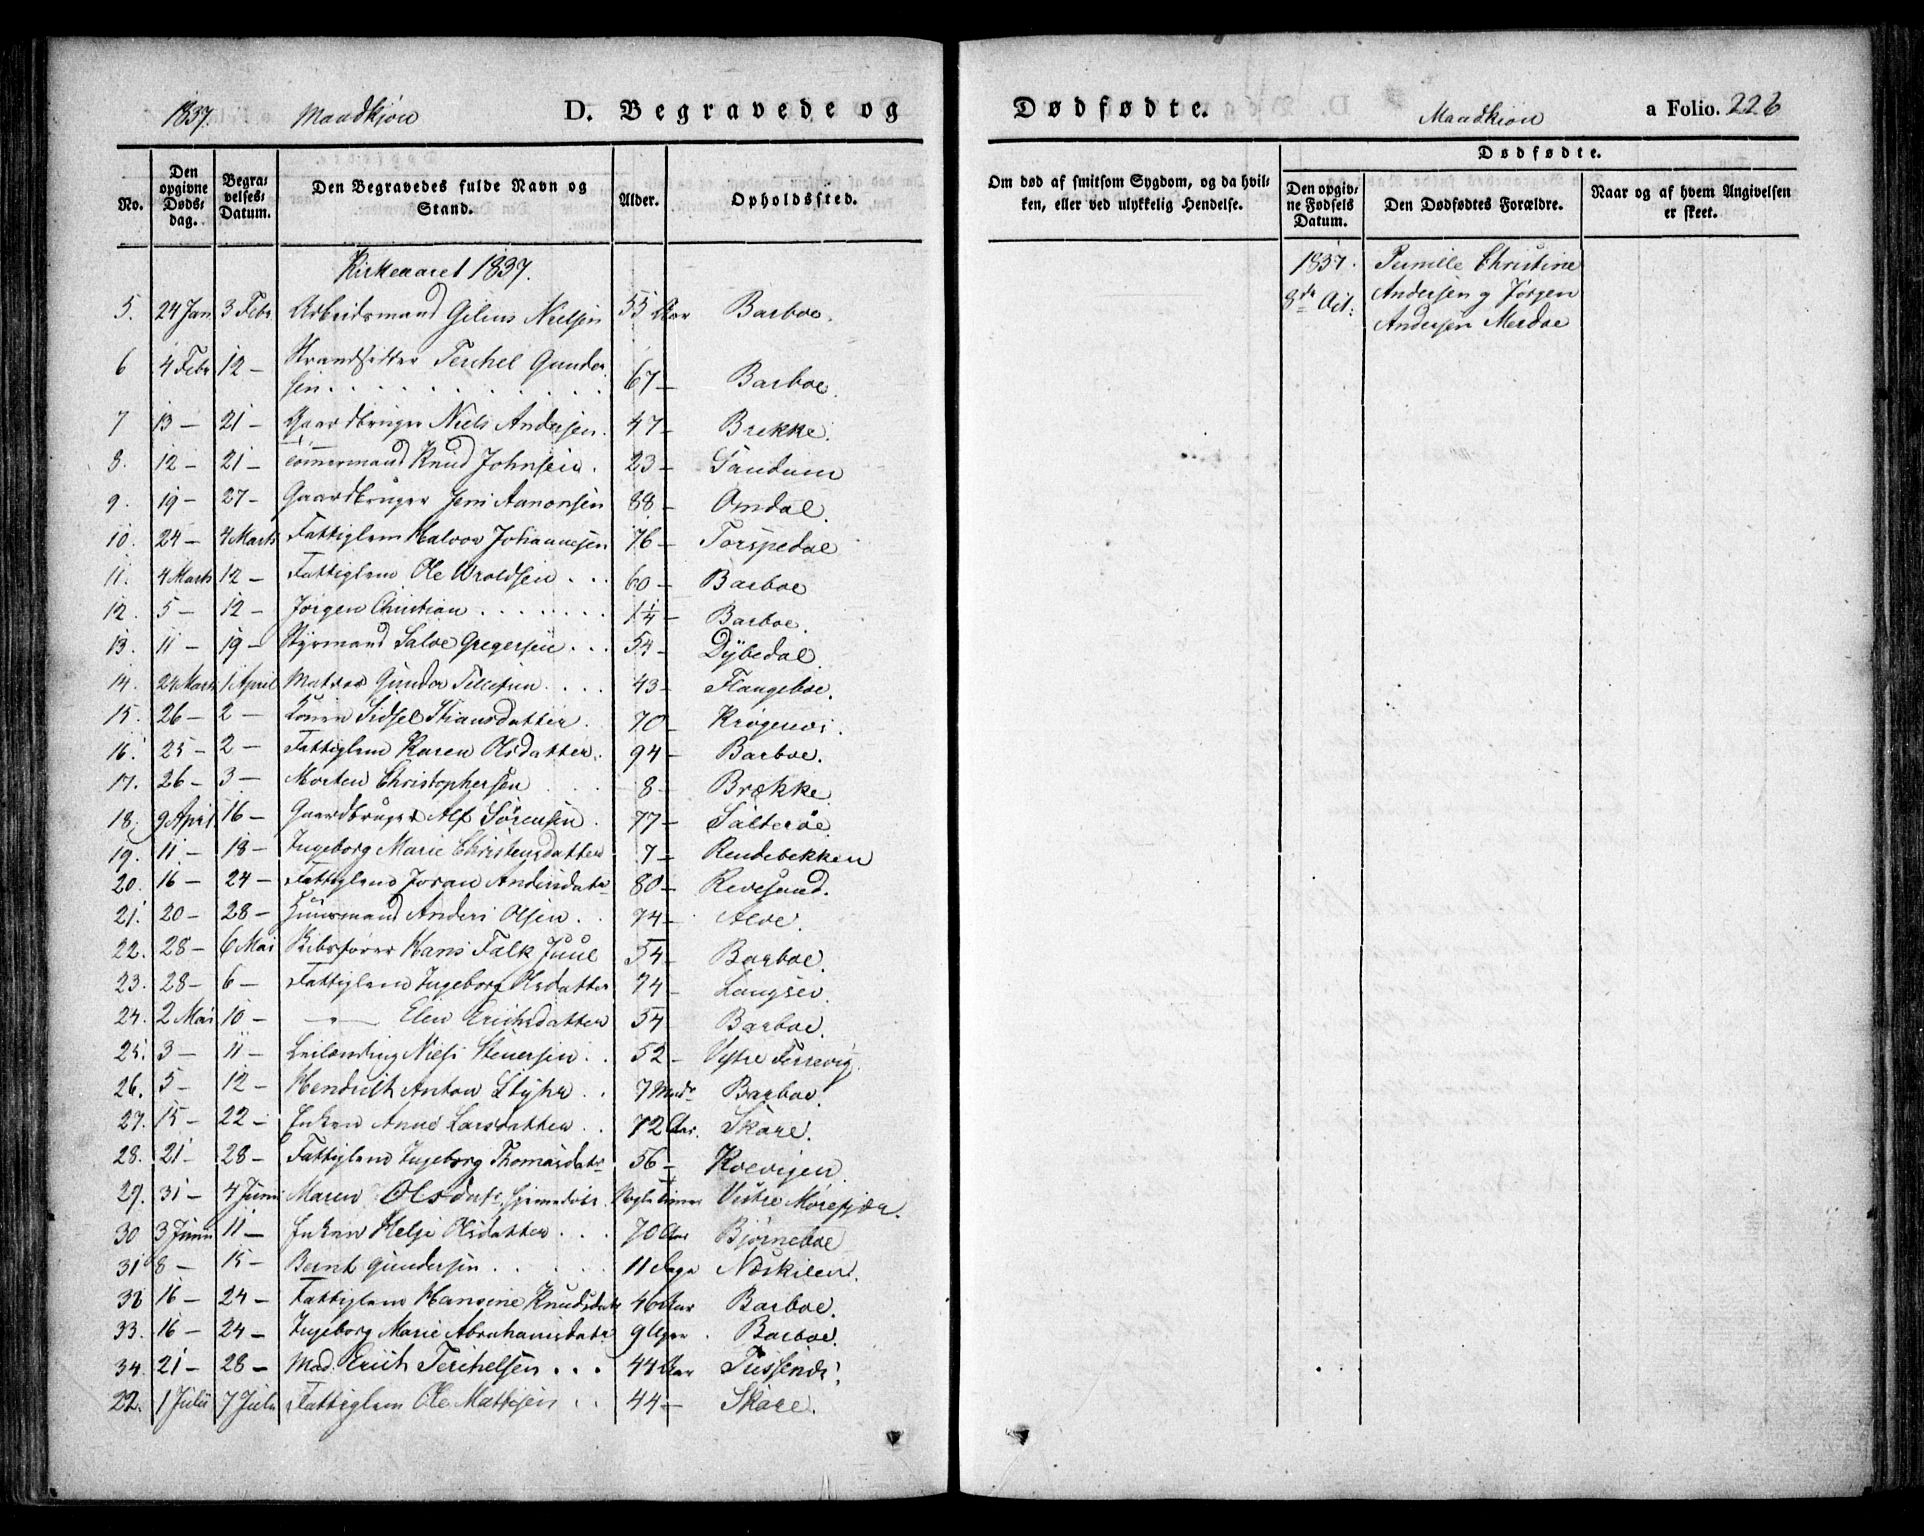 1837. Mandkjøn D. Begravede og
No. Den opgivne Døds-dag. Begra-velses-Datum. Den Begravedes fulde Navn og Stand. Alder. Opholdssted.
Kirkeaaret 1837.
5. 24 Jan 3 Febr Arbeidsmand Gilius Nielsen 55 Aar Barboe.
6 4 Febr 12 – Strandsitter Terchel Gunder
sen . . . . . . . 67 – Barboe.
7 13 – 21 – Gaardbruger Niels Andersen. 47 – Brekke.
8. 12 – 21 – Tømmermand Knud Johnsen. 23 – Sandum
9. 19 – 27 – Gaardbruger Jens Aanonsen 88 – Omdal.
10. 24 – 4 Marts Fattiglem Halvor Johannesen 76 – Torspedal
11. 4 Marts 12 – Fattiglem Ole Wroldsen . . . 60 – Barboe
12. 5 – 12 – Jørgen Christian . . . . . . . 1¼ – Barboe.
13. 11 – 19 – Styrmand Salve Gregersen . . . 54 – Dybedal.
14. 24 Marts 1 April Matros Gunder Tellefsen . . . . 43 – Flangeboe.
15. 26 – 2 – Konen Sidsel Stiansdatter . 70 – Krøgenes.
16. 25 – 2 – Fattiglem Karen Olsdatter. 94 – Barboe.
17. 26 – 3 – Morten Christophersen . . . 8 – Brække.
18. 9 April 16 – Gaardbruger Alf Sørensen . 77 – Salterøe.
19. 11 – 18 – Ingeborg Marie Christensdatter 7 – Rendebekken
20. 16 – 24 – Fattiglem Joran Andersdatr 80 – Revesand.
21. 20 – 28 – Huusmand Anders Olsen . . 74 – Alve.
22. 28 – 6 Mai Skibsfører Hans Falk Juul 54 – Barboe.
23. 28 – 6 – Fattiglem Ingeborg Olsdatter 74 – Langsev.
24. 2 Mai 10 – – " – Elen Erichsdatter 54 – Barboe.
25. 3 – 11 – Leilænding Niels Steners​en . . 52 – Vestre Terrevig.
26. 5 – 12 – Hendrich Anton Styhr . . 7 Mdr Barboe.
27. 15 – 22 – Enken Anne Larsdatter . . 72 Aar. Skare.
28. 21 – 28 – Fattiglem Ingeborg Thomasdatr 56 – Kvevigen.
29. 31 – 4 Juni Maren Olsdatr. hjemedøbt. Nogle Timer Vestre Morefjær.
30 3 Juni 11 – Enken Helje Olsdatter . . . 70 Aar Bjørneboe
31 8 – 15 – Bernt Gundersen . . . . . 11 Dage Neskilen.
32 16 – 24 – Fattiglem Hansine Knudsdatr 46 Aar Barboe.
33. 16 – 24 – Ingeborg Marie Abrahamsdatr 9 Uger . Barboe.
34. 21 – 28 – Mad. Erich Terchelsen . . . 44 Aar Tussenæs.
22. 1 Julii 7 Julii Fattiglem Ole Mathisen . . 44 – Skare.
Dødfødte. Mandkiøn a Folio. 226
Om død af smitsom Sygdom, og da hvil-ken, eller ved ulykkelig Hendelse.
Dødfødte.
Den opgiv-ne Fødsels Datum. Den Dødfødtes Forældre. Naar og af hvem Angivelsen er skeet.
1837. Pernille Christine
8de Oct: Andersen og Jørgen
Andersen Merdøe